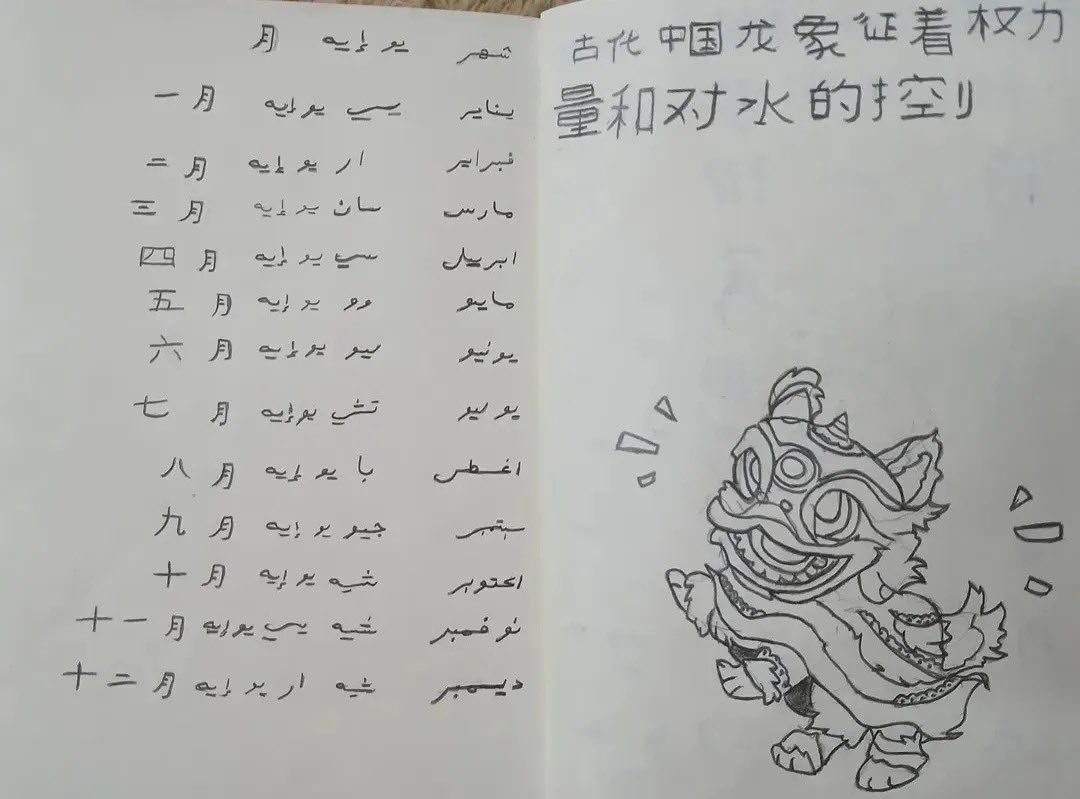 شهر يو إيه 月
يناير يي يو إيه 一月
فبراير ار يو إيه 二月
مارس سان يو إيه 三月
ابريل سي يو إيه 四月
مايو وو يو إيه 五月
يونيو ليو يو إيه 六月
يوليو تشي يو إيه 七月
اغسطس با يو إيه 八月
سبتمبر جيو يو إيه 九月
اكتوبر شيه يو إيه 十月
نوفمبر شيه يي يو إيه 十一月
ديسمبر شيه ار يو إيه 十二月
古代中国龙象征着权力
量和对水的控刂